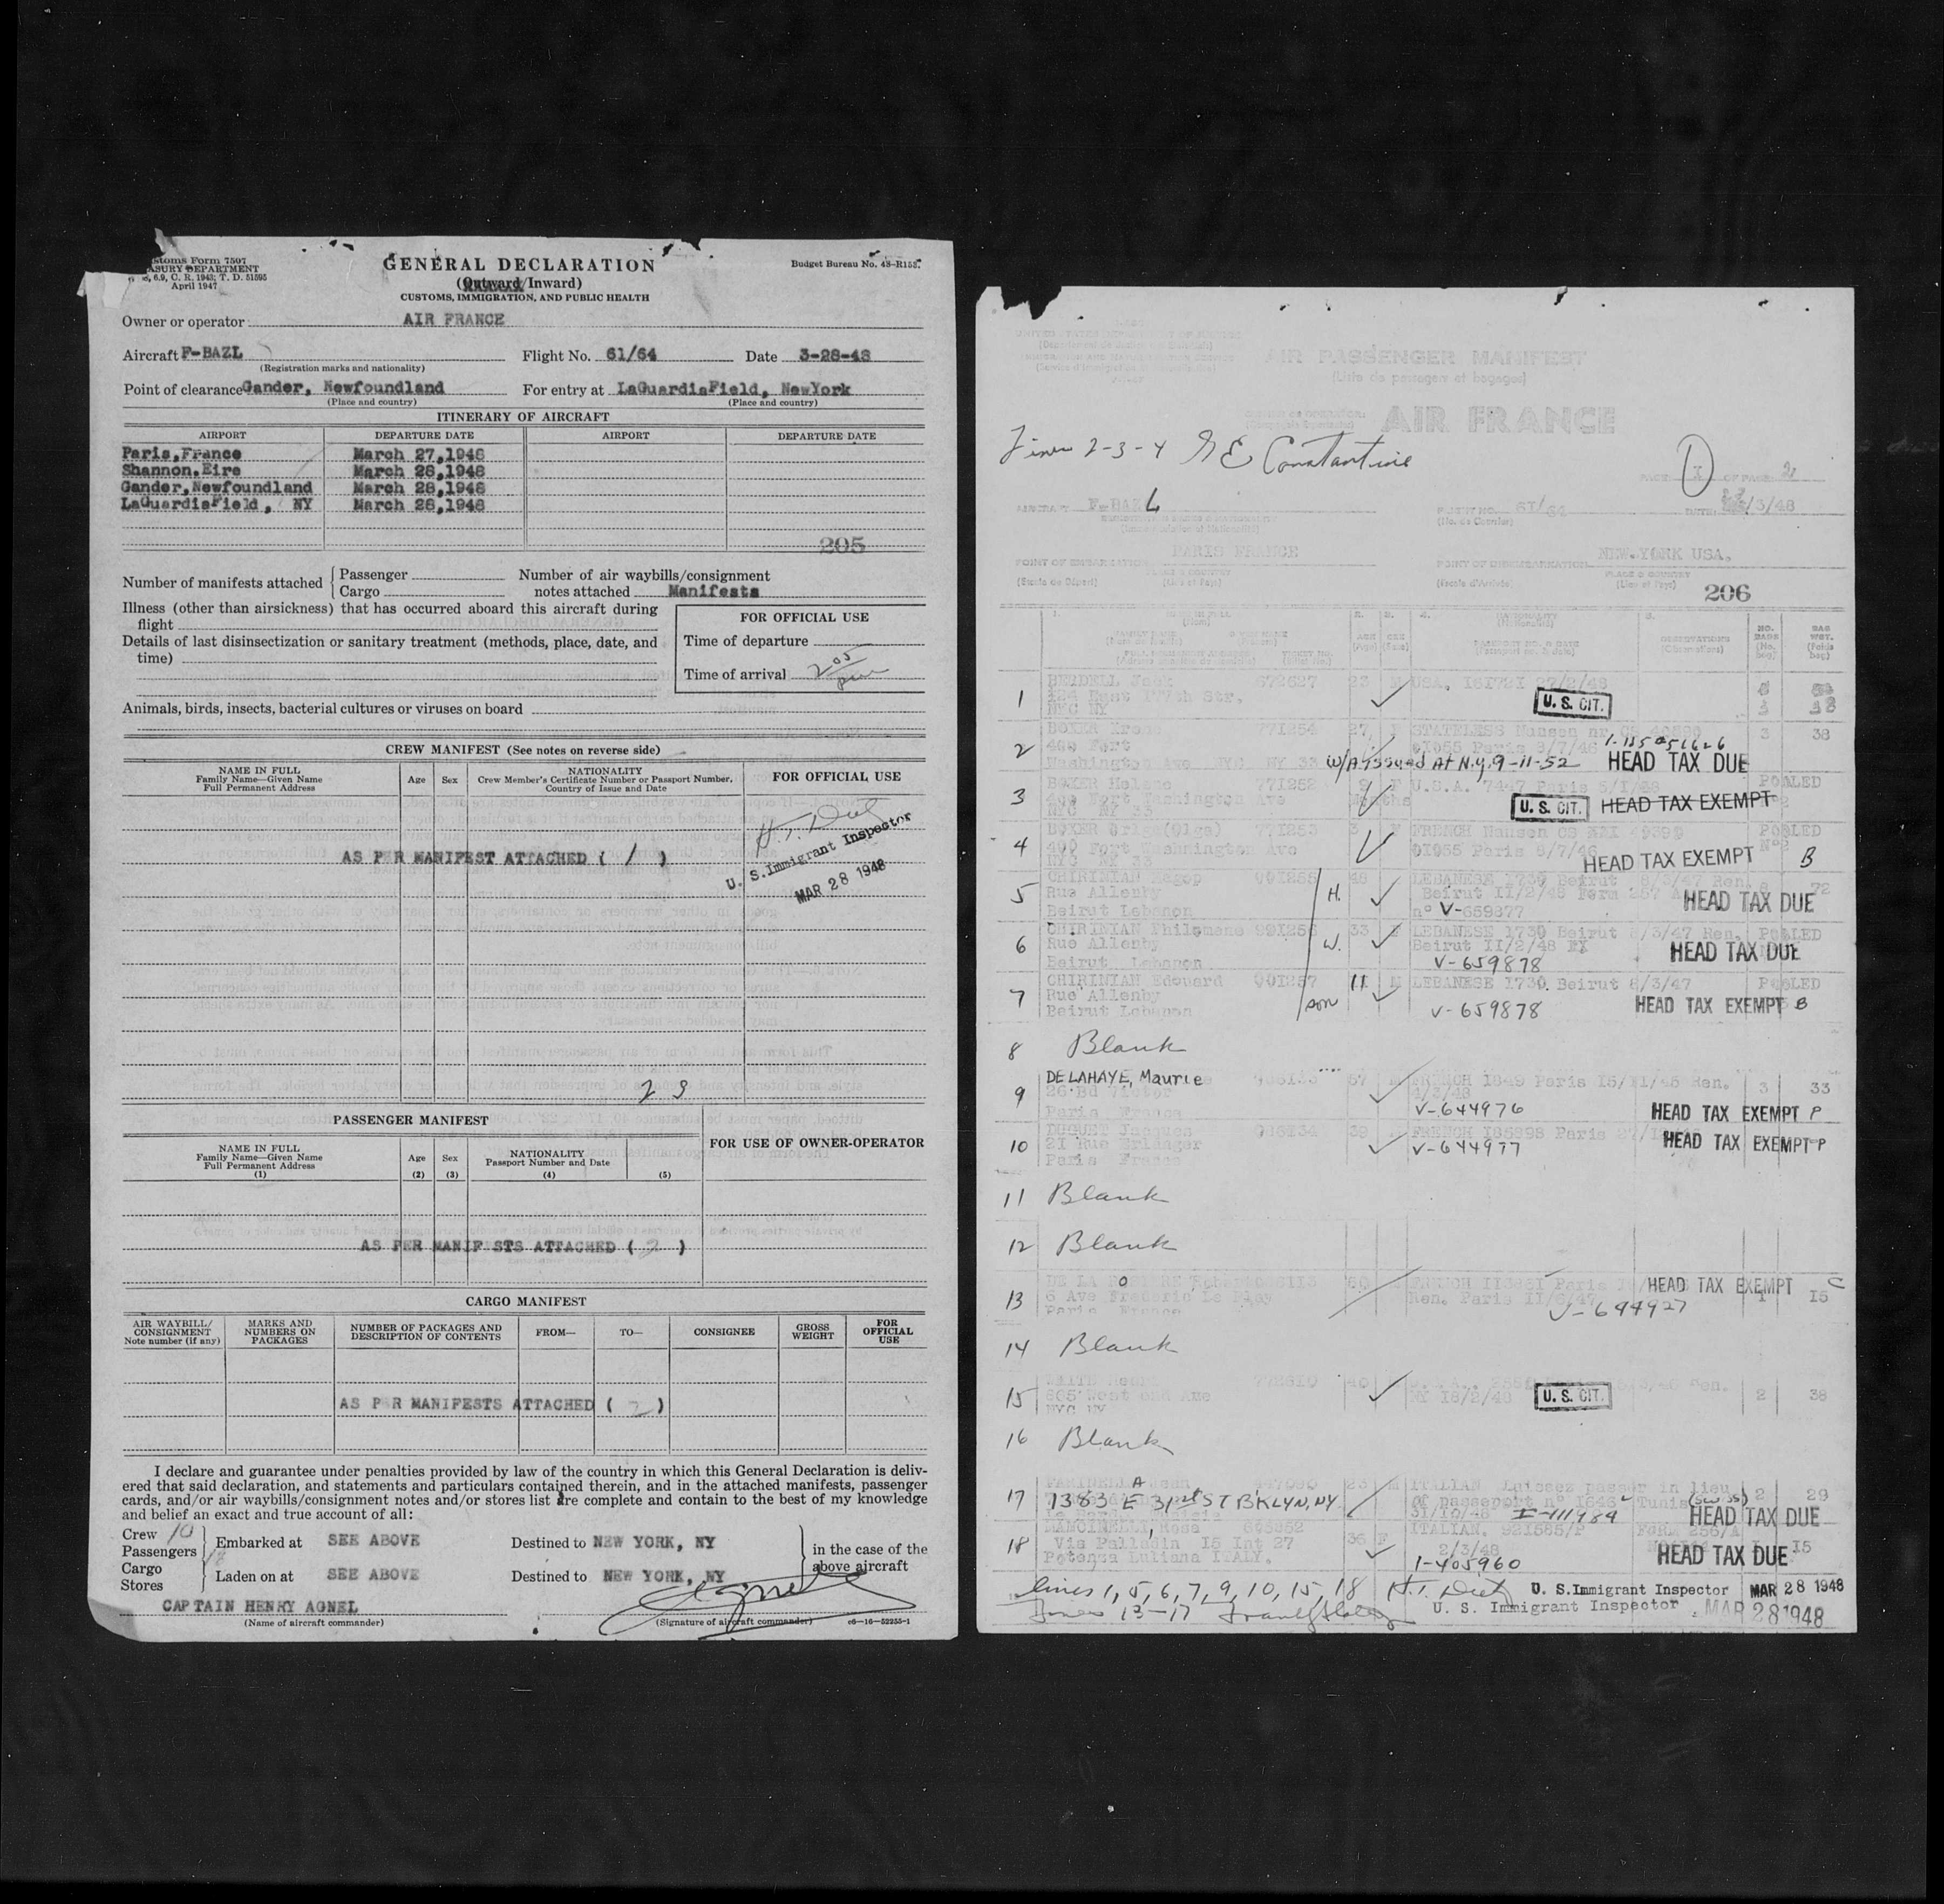 Customs Form 7507
TREASURY DEPARTMENT
6.9, C. R. 1943; T. D. 51595
April 1947
GENERAL DECLARATION
(Outward/Inward)
CUSTOMS, IMMIGRATION, AND PUBLIC HEALTH
Budget Bureau No. 48-R153.
Owner or operator AIR FRANCE
Aircraft F-BAZL Flight No. 61/64 Date 3-28-48
(Registration marks and nationality)
Point of clearance Gander, Newfoundland For entry at LaGuardiaField, NewYork
(Place and country) (Place and country)
ITINERARY OF AIRCRAFT
AIRPORT DEPARTURE DATE AIRPORT DEPARTURE DATE
Paris,France March 27,1948
Shannon.Eire March 28,1948
Gander,Newfoundland March 28,1948
LaGuardiaField, NY March 28,1948
205
Number of manifests attached { Passenger
Cargo
Number of air waybills/consignment
notes attached Manifests
Illness (other than airsickness) that has occurred aboard this aircraft during
flight
Details of last disinsectization or sanitary treatment (methods, place, date, and
time)
FOR OFFICIAL USE
Time of departure
Time of arrival 2 05 pm
Animals, birds, insects, bacterial cultures or viruses on board
CREW MANIFEST (See notes on reverse side)
NAME IN FULL
Family Name—Given Name
Full Permanent Address
Age Sex
NATIONALITY
Crew Member's Certificate Number or Passport Number,
Country of Issue and Date
FOR OFFICIAL USE
AS PER MANIFEST ATTACHED ( 1 )
U. S. Immigrant Inspector
MAR 28 1948
PASSENGER MANIFEST
NAME IN FULL
Family Name—Given Name
Full Permanent Address
(1)
Age
(2)
Sex
(3)
NATIONALITY
Passport Number and Date
(4) (5)
FOR USE OF OWNER-OPERATOR
AS PER MANIFESTS ATTACHED ( 2 )
CARGO MANIFEST
AIR WAYBILL/
CONSIGNMENT
Note number (if any)
MARKS AND
NUMBERS ON
PACKAGES
NUMBER OF PACKAGES AND
DESCRIPTION OF CONTENTS
FROM— TO— CONSIGNEE
GROSS
WEIGHT
FOR
OFFICIAL
USE
AS PER MANIFESTS ATTACHED ( 2 )
I declare and guarantee under penalties provided by law of the country in which this General Declaration is deliv-
ered that said declaration, and statements and particulars contained therein, and in the attached manifests, passenger
cards, and/or air waybills/consignment notes and/or stores list are complete and contain to the best of my knowledge
and belief an exact and true account of all:
Crew 10
Passengers 18
Cargo
Stores
Embarked at SEE ABOVE Destined to NEW YORK, NY
Laden on at SEE ABOVE Destined to NEW YORK, NY
in the case of the
above aircraft
CAPTAIN HENRY AGNEL
(Name of aircraft commander) (Signature of aircraft commander) c6-16-52255-1
AIR PASSENGER MANIFEST
(Liste de passagers et bagages)
AIR FRANCE
Lines 2-3-4 G E Constantine
PAGE 1 OF PAGE 2
AIRCRAFT F-BAZL FLIGHT NO. 61/64 DATE /3/48
POINT OF EMBARKATION PARIS FRANCE POINT OF DISEMBARKATION NEW.YORK USA.
206
1 BERDELL Jack 672627 23 M USA, 27/2/48 U. S. CIT.
124 East 177th Str.
NYC NY
2 BOXER 771254 27 STATELESS Nansen
400 Fort 01055 Paris 8/7/46 3 38
Washington Ave NYC NY 33 W/A Issued At N.Y. 9-11-52 HEAD TAX DUE
3 BOXER Helene 771252 9 F U.S.A. 7447 Paris 5/1/48 POOLED
400 Fort Washington Ave months U. S. CIT. HEAD TAX EXEMPT
NYC NY 33
4 BOXER (Olga) 771253 3 FRENCH Nansen POOLED
400 Fort Washington Ave 01055 Paris 8/7/46 HEAD TAX EXEMPT B
NYC NY 33
5 CHIRINIAN Agop 901255 H. 48 LEBANESE 1730 Beirut 8/3/47 Ren. 72
Rue Allenby Beirut 11/2/48 HEAD TAX DUE
Beirut Lebanon n° V-659877
6 CHIRINIAN Philomene 901256 W. 33 LEBANESE 1730 Beirut 8/3/47 Ren. POOLED
Rue Allenby Beirut 11/2/48 HEAD TAX DUE
Beirut Lebanon V-659878
7 CHIRINIAN Edouard 901257 son 11 M LEBANESE 1730 Beirut 8/3/47 POOLED
Rue Allenby HEAD TAX EXEMPT B
Beirut Lebanon V-659878
8 Blank
9 DELAHAYE, Maurice 57 FRENCH 1849 Paris 15/11/46 Ren. 3 33
26 Bd Victor 4/3/48
Paris France V-644976 HEAD TAX EXEMPT P
10 DUQUET Jacques 39 FRENCH 185898 Paris
21 Rue Erlanger V-644977 HEAD TAX EXEMPT P
Paris France
11 Blank
12 Blank
13 DE LA 60 FRENCH Paris HEAD TAX EXEMPT C
6 Ave Frederic Le Play Ren. Paris 11/6/47 1 15
Paris France V-644927
14 Blank
15 WHITE 40 Ren.
605 West end Ave NY 18/2/48 U. S. CIT. 2 38
NYC NY
16 Blank
17 23 M ITALIAN Laissez passer in lieu 2 29
1383 E 31st ST BKLYN, NY of passeport n° 1646 Tunis
31/10/48 I-111984 HEAD TAX DUE
18 Rosa 36 F ITALIAN. 921585/P FORM 256/A
Via Palladin 15 Int 27 2/3/48 15
Potenza Luliana ITALY. 1-405960 HEAD TAX DUE
Lines 1, 5, 6, 7, 9, 10, 15, 18 U. S. Immigrant Inspector MAR 28 1948
Lines 13-17 U. S. Immigrant Inspector MAR 28 1948